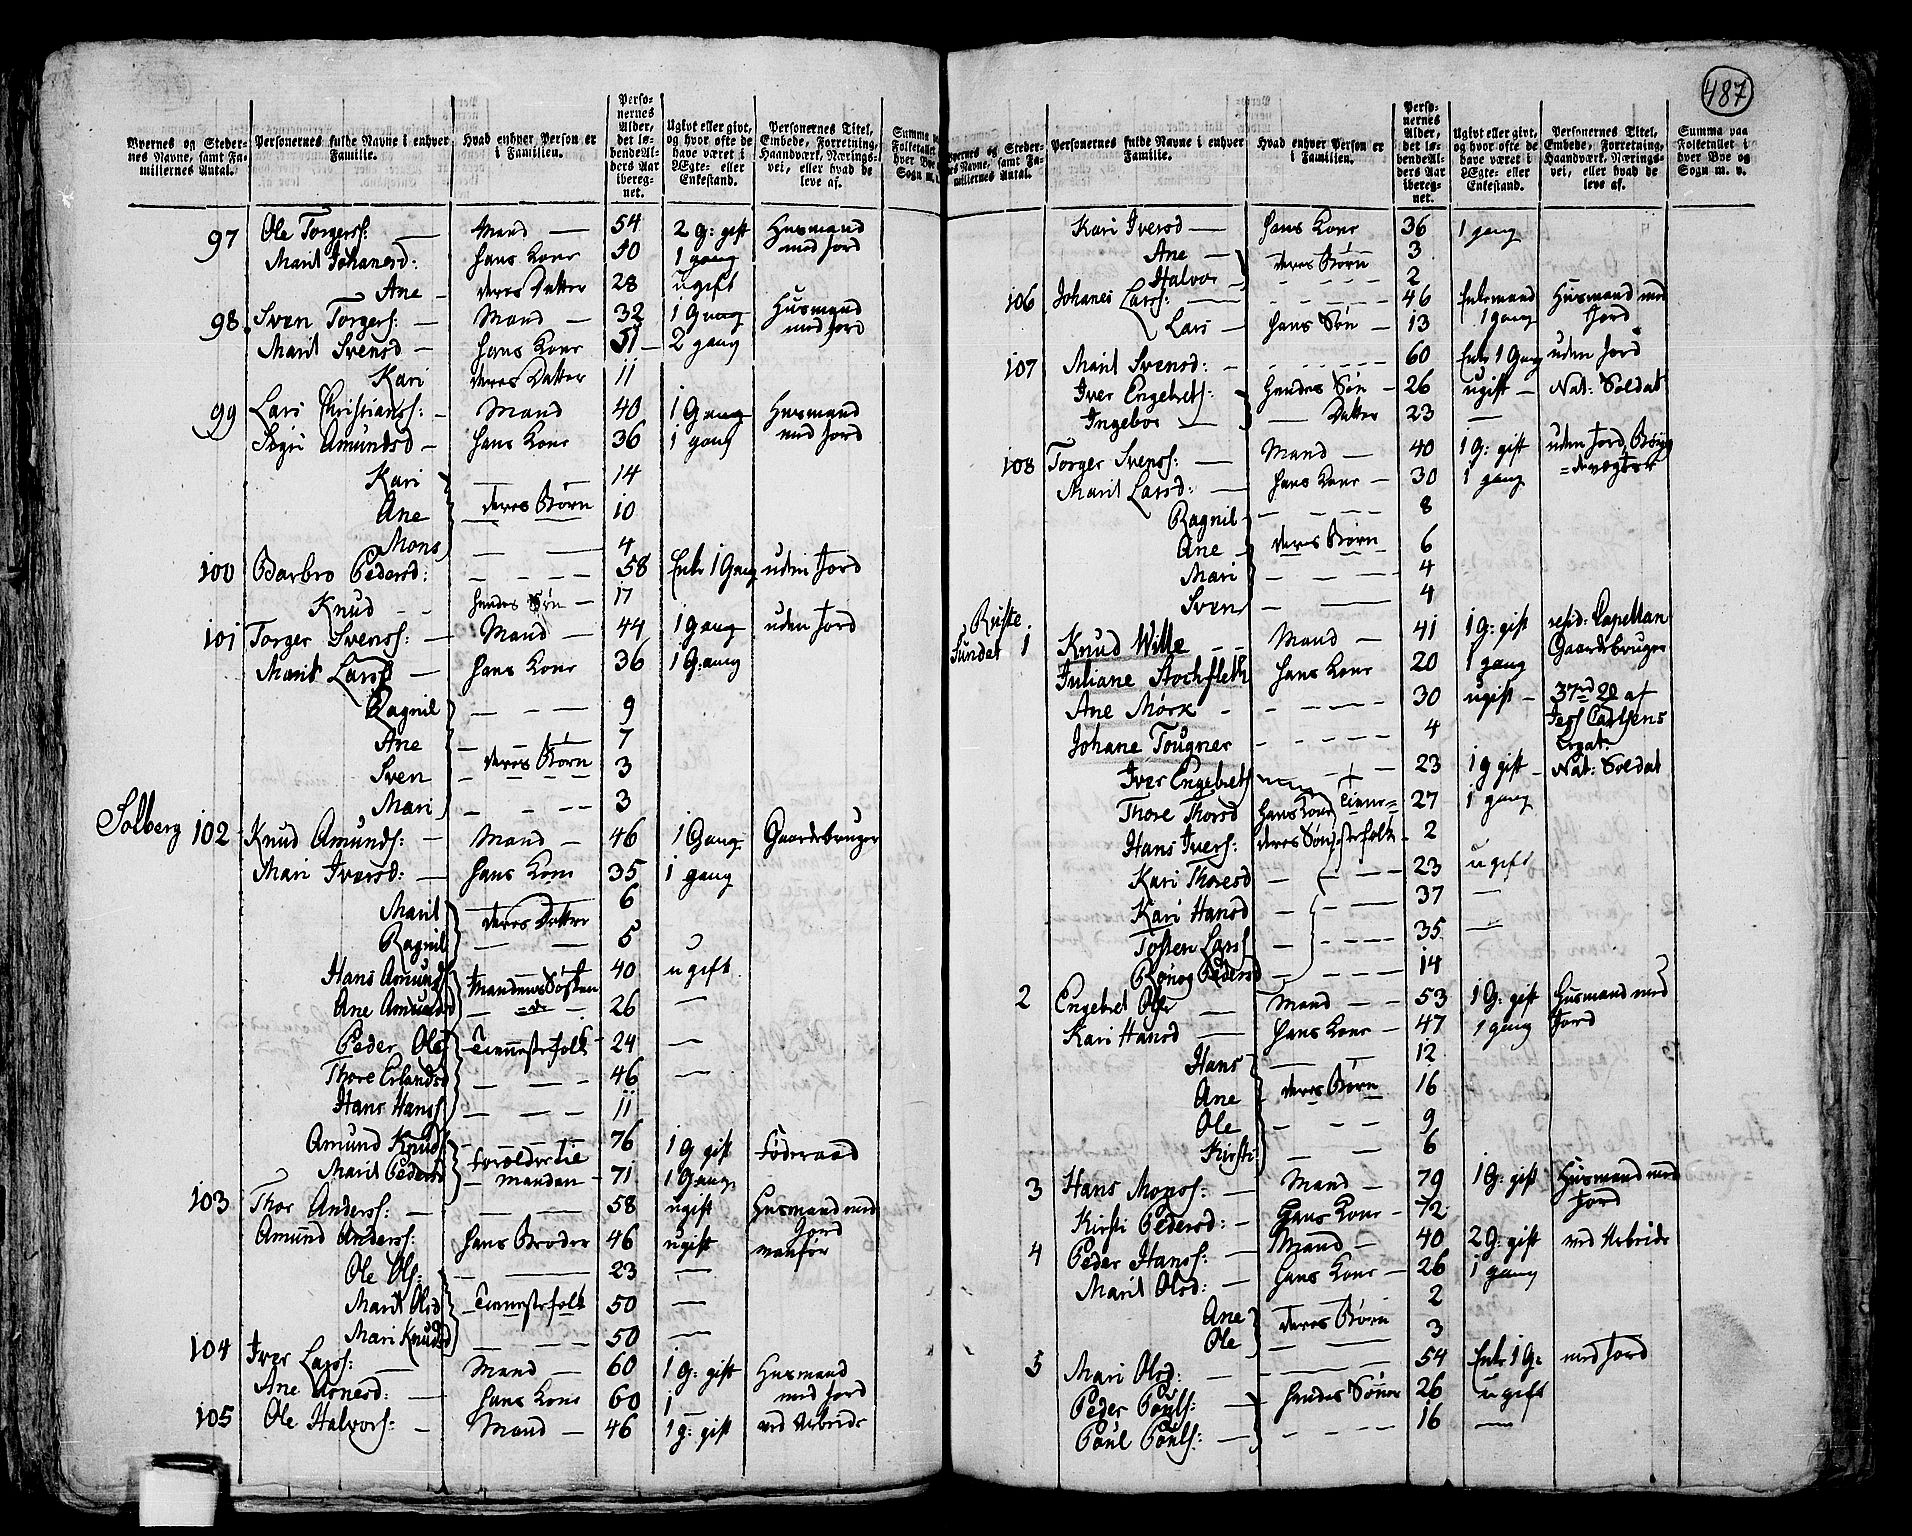 487
Byernes og Stedernes Navne, samt Familiernes Antal. Personernes fulde Navne i enhver Familie. Hvad enhver Person er i Familien. Personernes Alder, det løbende Alders Aar iberegnet. Ugivt eller givt, og hvor ofte de have været i Ægte- eller Enkestand. Personernes Titel, Embede, Forretning, Haandværk, Næringsvei, eller hvad de leve af.
97 Ole Torgers: — Mand — 54 2 G: gift Husmand med Jord
Marit Johanesd: hans Kone 40 1 gang
Ane — deres Datter 28 ugift
98. Sven Torgers: — Mand — 32 1 Gang Husmand med Jord
Marit Svensd — hans Kone 51 — 2 gang
Kari deres Datter 11
99 Lars Christians: — Mand 40 1 Gang Husmand med Jord
Sigri Amundsd — hans Kone 36 1 gang
Kari — — 14
Ane deres Børn 10
Mons — — 4
100 Barbro Pedersd: — — — — 58 Enke 1 Gang uden Jord
Knud — — hendes Søn — 17
101 Torger Svens: — Mand — 44 1 Gang uden Jord
Marit Larsd — hans Kone 36 1 G:ang
Ragnil — — — — 9
Ane — — — — 7
Sven deres Børn 3
Mari — — — — 3
Solberg 102 Knud Amunds: — Mand — 46 1 Gang Gaardebruger
Mari Iversd: — hans Kone 35 1 gang
Marit 6
Ragnil deres Datter 5
Hans Amunds 40 ugift
Ane Amundsd Mandens Søsken=de 26 —
Peder Ols Tiennestefolk 24 —
Thore Erlandsd — — — 46 —
Hans Hans — — — 11
Amund Knuds — — — 76 1 G gift Føderaad
Marit Pedersd Forældre til Manden — 71 1 Gang
103 Thor Anders: — — — — 58 ugift Husmand med Jord
Amund Anders: hans Broder 46 ugift vanfør
Ole Ols: — — — 23 —
Marit Olsd — Tiennestefolk 50 —
Mari Knudsd — — — 50 —
104 Iver Lars: — Mand — 60 1 G: gift Husmand med Jord
Ane Arnesd: — hans Kone 60 1 —
105 Ole Halvors: — Mand — 46 1 g: gift ved Arbeide
Byernes og Stedernes Navne, samt Familiernes Antal. Personernes fulde Navne i enhver Familie. Hvad enhver Person er i Familien. Personernes Alder, det løbende Alders Aar iberegnet. Ugivt eller givt, og hvor ofte de have været i Ægte- eller Enkestand. Personernes Titel, Embede, Forretning, Haandværk, Næringsvei, eller hvad de leve af. Summa paa Folketallet i hver Bye og Sogn m. v.
Kari Iversd — hans Kone 36 1 gang
Ane — 3
Halvor deres Børn 2
106 Johanes Lars: — — — — 46 Enkemand 1 gang Husmand med Jord
Lars — hans Søn — 13
107 Marit Svensd: — — — — 60 Enke 1 Gang uden Jord
Iver Engebrets: hendes Søn — 26 ugift — Nat: Soldat
Ingebor — — Datter 23 —
108 Torger Svens: — Mand — 40 1 G: gift uden Jord
Marit Larsd: — hans Kone — 30 1 gang
Ragnil — — — 8
Ane — deres Børn 6
Mari — — — 4
Sven — — — 4
Ruste
Sundet 1 Knud Wille — — Mand — — 41 1 G: gift resid: Capellan Gaardebruger
Juliane Stochfleth hans Kone 20 1 gang
Ane Mørk — — — — 30 ugift —
Johane Tougner — — — — 4
Iver Engebrets 23 1 g gift — Nat: Soldat
Thore Thorsd hans Kone Tienne= 27 1 gang
Hans Ivers: deres Søn =stefolk 2
Kari Thoresd — — — 23 ugift
Kari Hansd — — — 37 —
Tosten Lars — — — 35 —
Rønog Pedersd — — — 14
2 Engebret Ols — Mand — — 53 1 G: gift Husmand med Jord
Kari Hansd — hans Kone — 47 1 gang
Hans — 12
Ane deres Børn 16
Ole — — — 9
Kirsti — — — 6
3 Hans Mons: — Mand — — 79 1 G: gift Husmand med Jord
Kirsti Pedersd: — hans Kone — 72
4 Peder Hans: — Mand — 40 2 G: gift ved Arbeide
Marit Olsd: — hans Kone — 26 1 gang
Ane — 2
Ole deres Børn 3
5 Mari Olsd: — — — — 54 Enke 1 G: med Jord
Peder Pouls: — hendes Sønner 26 ugift
Poul Pouls: — — — — 16 —